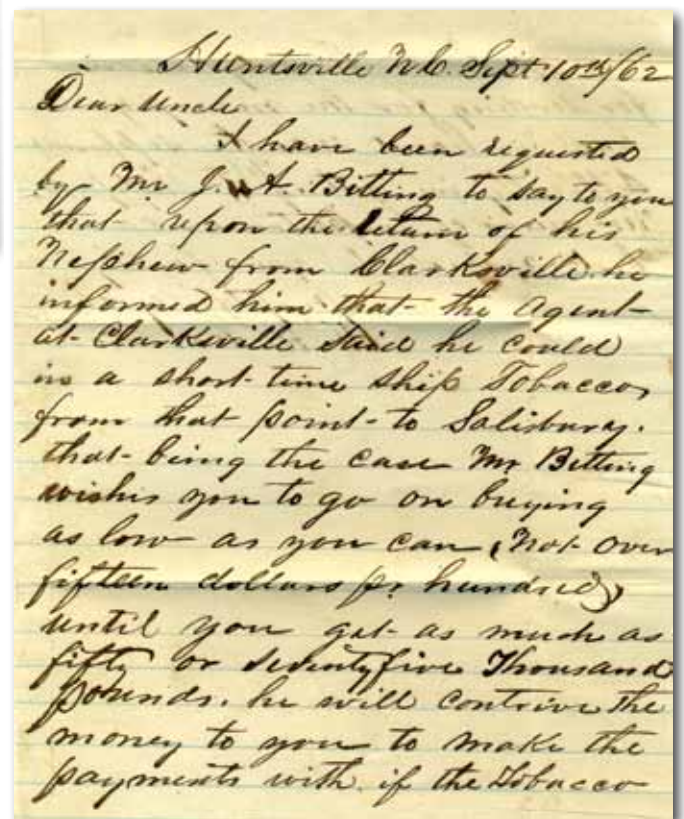 Huntsville N.C. Sept 10th/62
Dear Uncle
I have been requested
by Mr J. A. Bitting to say to you
that upon the return of his
Nephew from Clarksville he
informed him that the agent
at Clarksville said he could
in a short time ship Tobacco
from that point to Salisbury.
that being the case Mr Bitting
wishes you to go on buying
as low as you can (Not over
fifteen dollars pr hundred)
until you get as much as
fifty or seventyfive Thousand
pounds. he will contrive the
money to you to make the
payments with. if the Tobacco